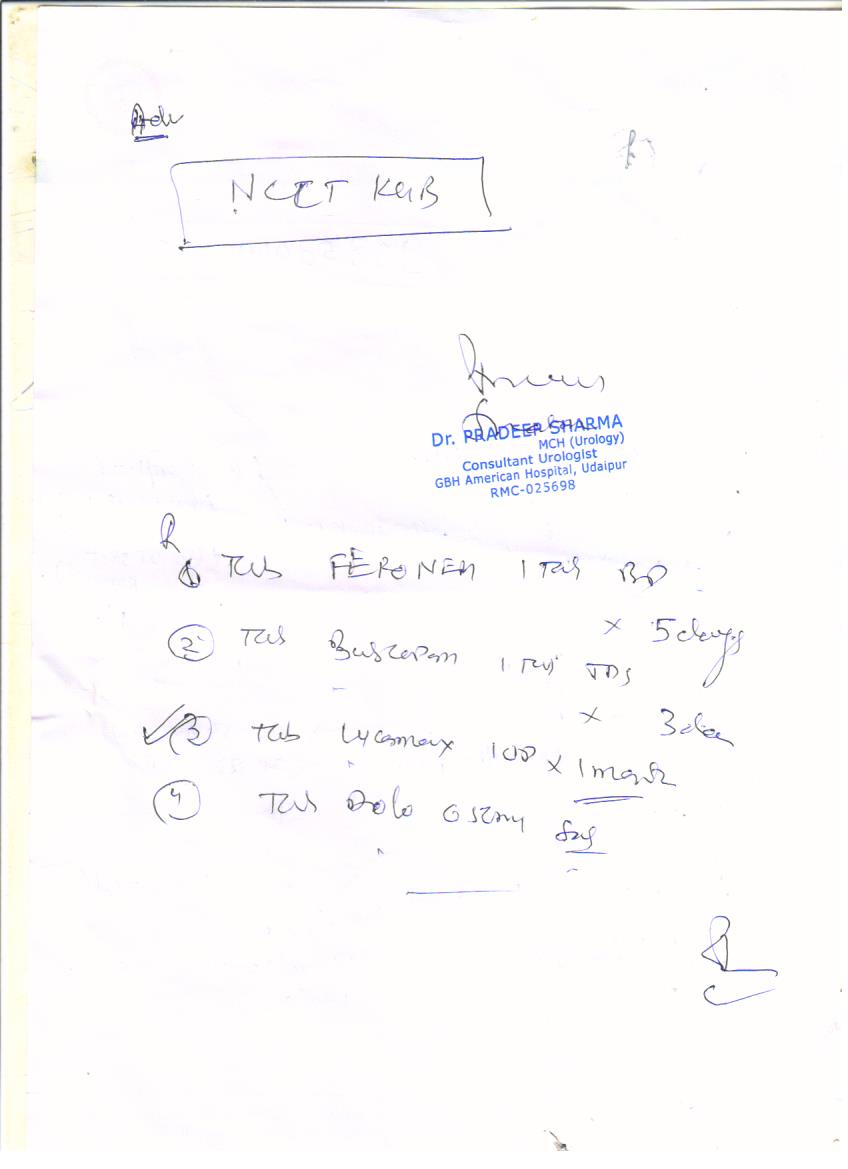 Adv
NCCT KUB
Dr. PRADEEP SHARMA
MCH (Urology)
Consultant Urologist
GBH American Hospital, Udaipur
RMC-025698
R
1 Tab FERONEM 1 Tab BD
x 5 days
2 Tab Buscopan 1 Tab TDS
x 3 da
3 Tab Lycomax 1 OD x 1 month
4 Tab Dolo SOS